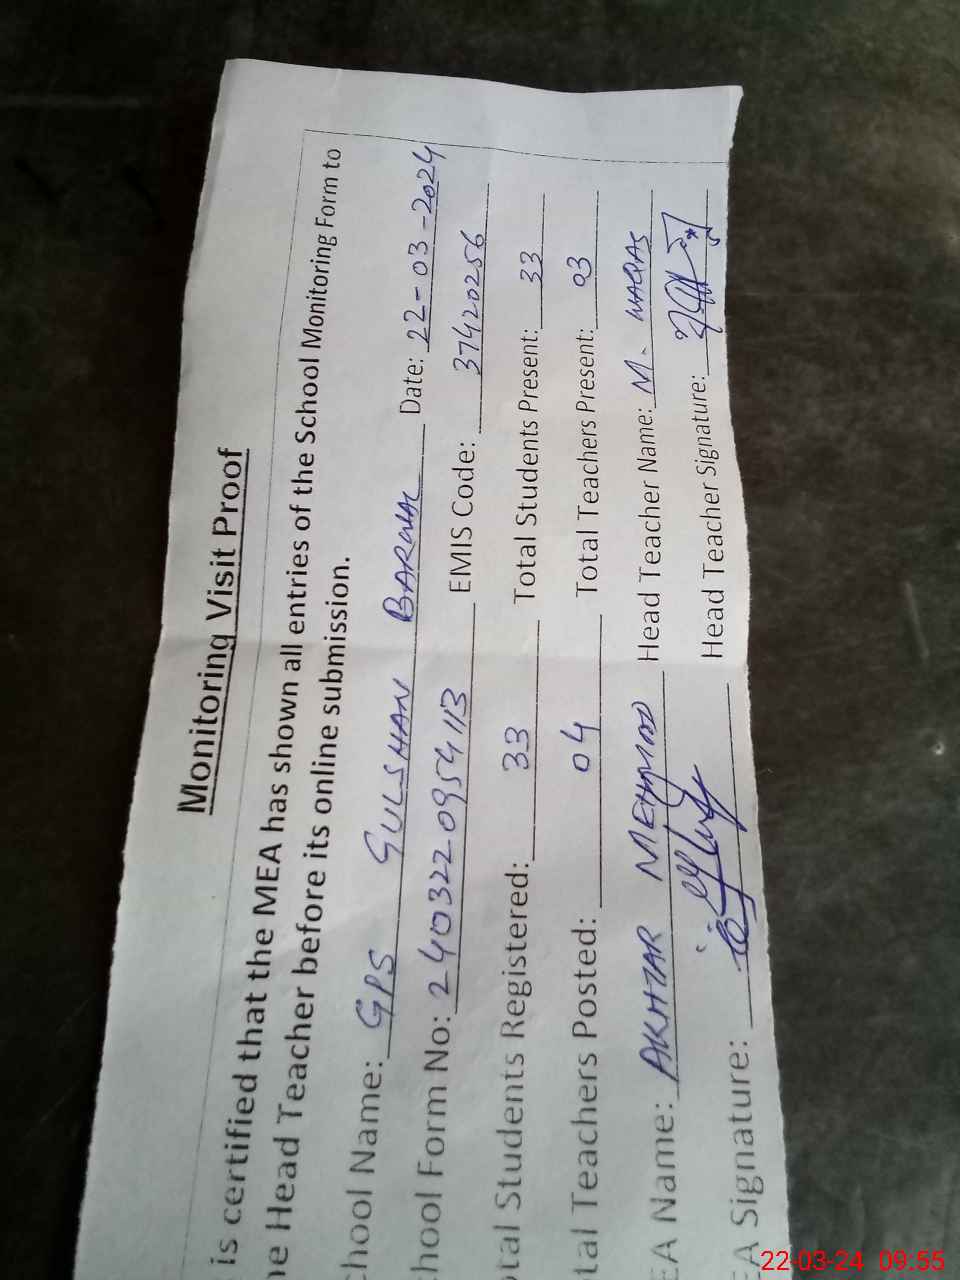 Monitoring Visit Proof
is certified that the MEA has shown all entries of the School Monitoring Form to
he Head Teacher before its online submission.
chool Name: GPS GULSHAN BARWAL Date: 22-03-2024
chool Form No: 2403220954113 EMIS Code: 37420256
otal Students Registered: 33 Total Students Present: 33
tal Teachers Posted: 04 Total Teachers Present: 03
EA Name: AKHTAR MEHMOOD Head Teacher Name: M. WAQAS
EA Signature: Head Teacher Signature:
22-03-24 09:55